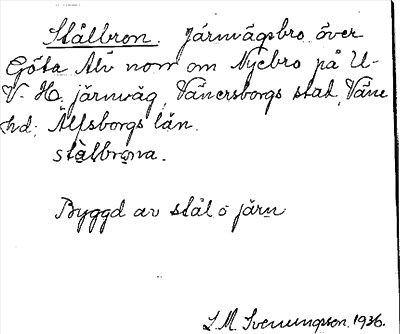 Stålbron. Järnvägsbro över
Göta Älv norr om Nyebro på U-
V-H. järnväg, Vänersborgs stad, Väne
hd; Älfsborgs län.
stålbrona.
Byggd av stål o järn
L.M. Svenungson, 1936.